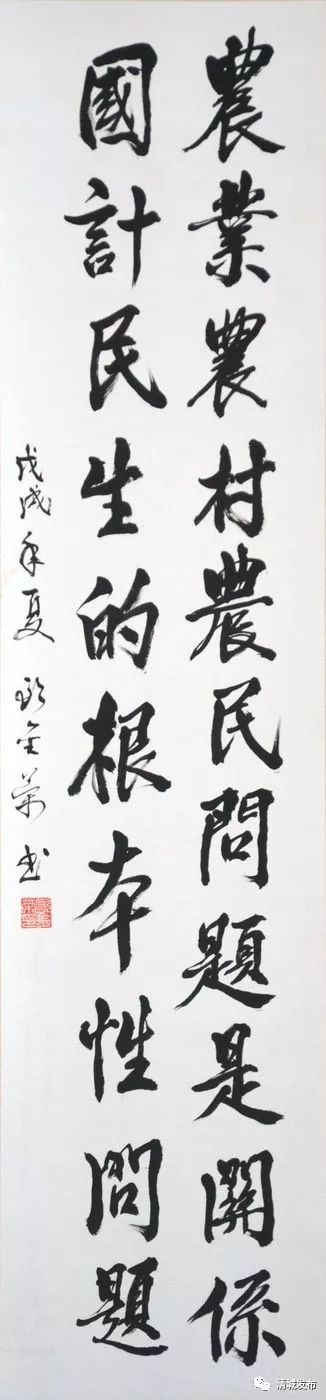 農業農村農民問題是關係
國計民生的根本性問題
戊戌年夏 金 書
清城发布